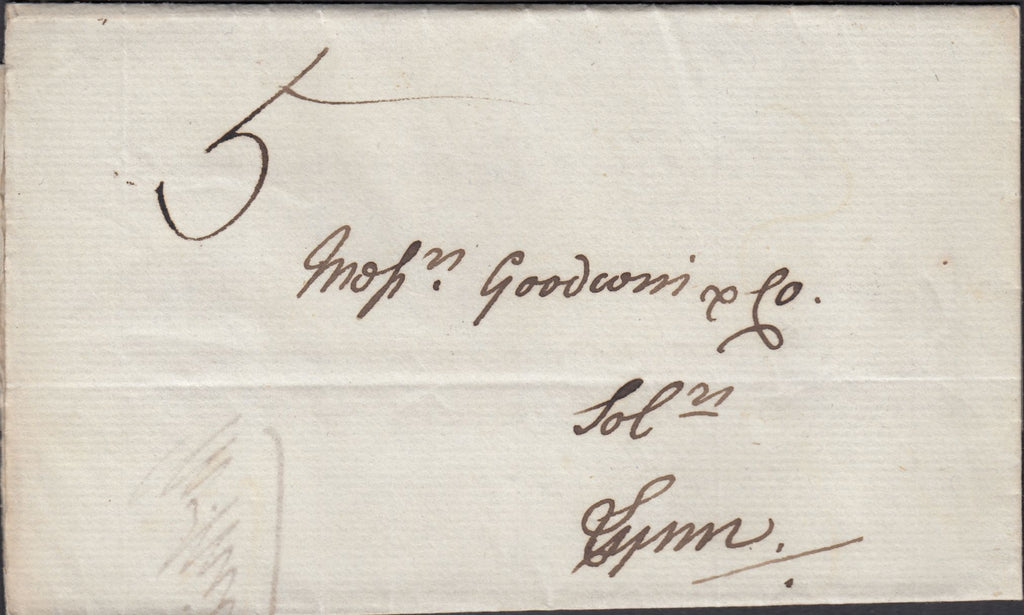 5
Messrs. Goodwin & Co.
Solrs
Lynn.